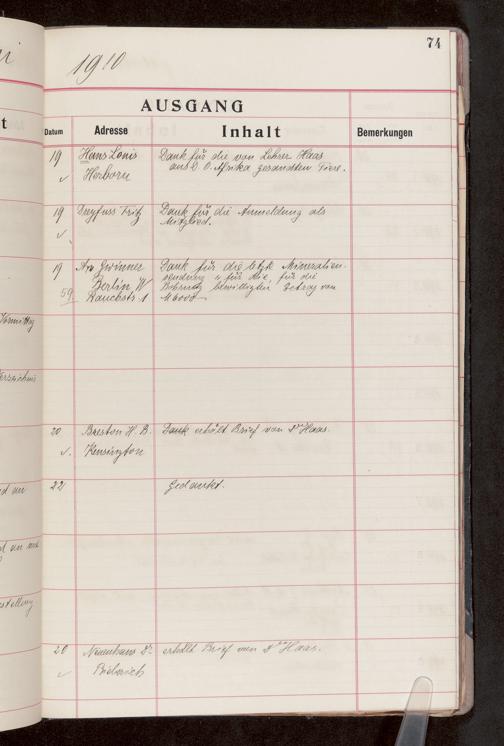 74
1910
AUSGANG
Datum Adresse Inhalt Bemerkungen
19 Hans Louis Dank für die von Lehrer Haas
Herborn aus O. Afrika gesandten Tiere.
19 Dreyfuss Fritz Dank für die Anmeldung als
Mitglied.
19 Gwinner Dank für die letzte Mineralien-
Berlin W sendung u für die für die
59 Rauchstr. 1 bewilligten Betrag von
M 6000
20 Breston H. B. Dank erhält Brief von Dr Haas.
Kensington
22 Gedankt.
20 Neuenhaus Dr. erhält Brief von Dr Haas.
Biebrich